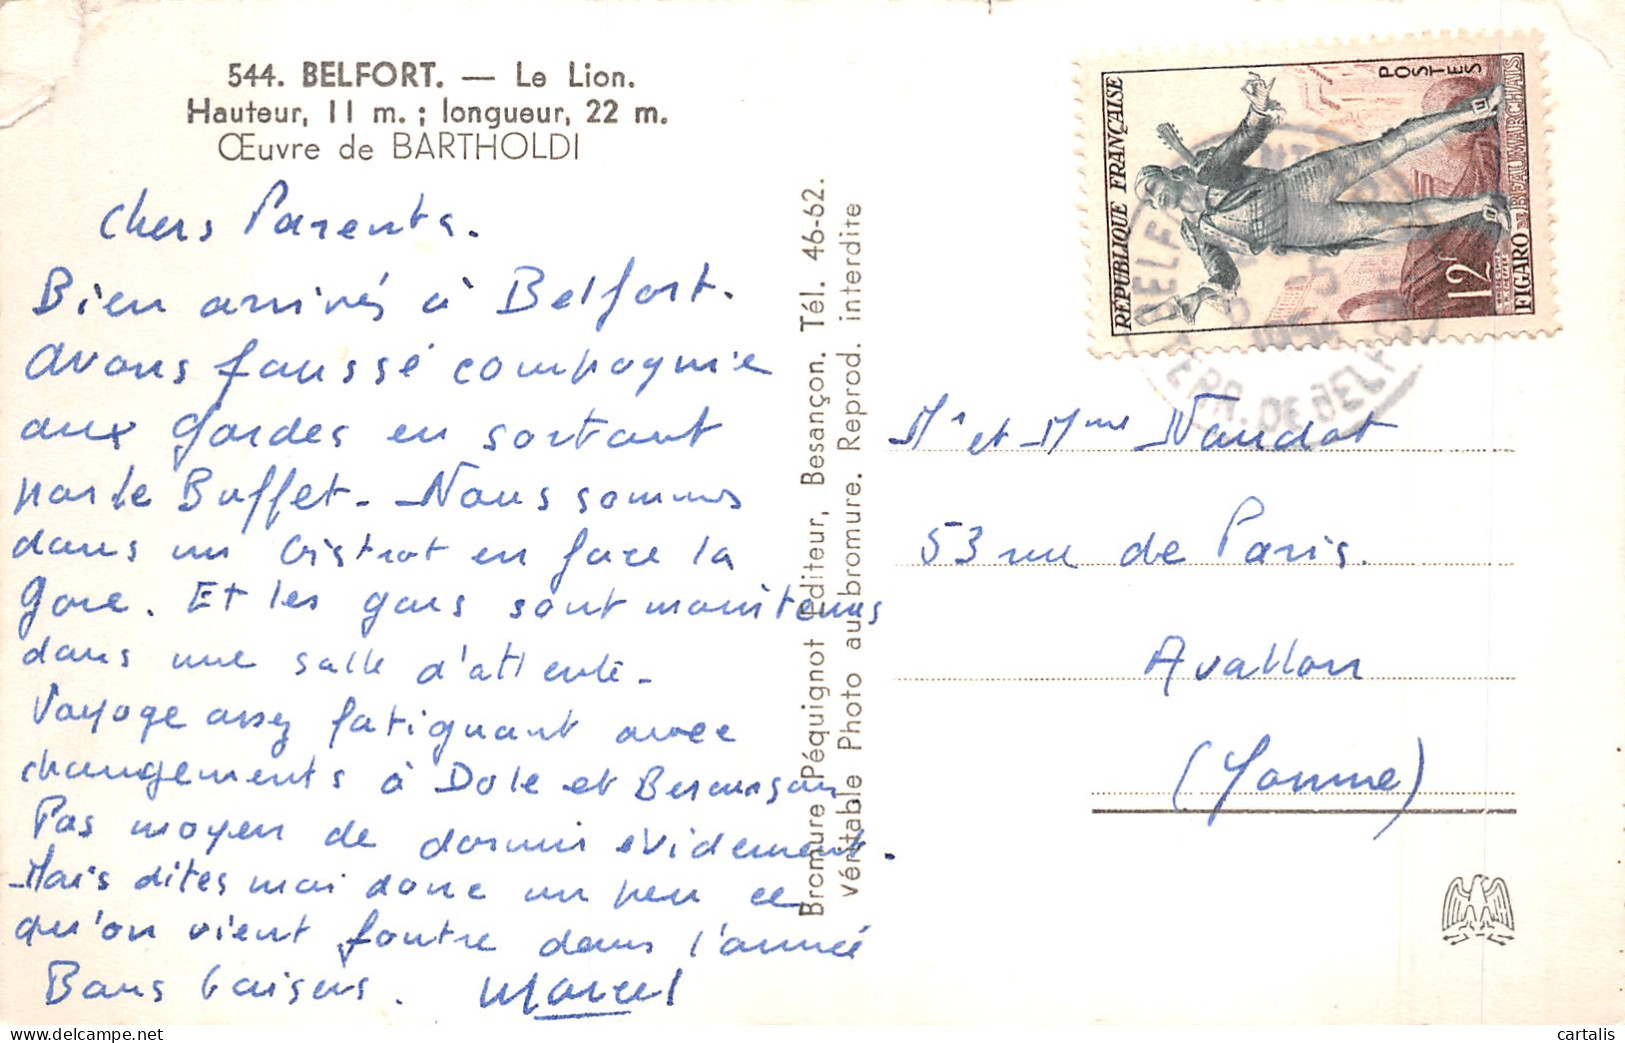 544. BELFORT. — Le Lion.
Hauteur, 11 m. ; longueur, 22 m.
Œuvre de BARTHOLDI
Chers Parents.
Bien arrivés à Belfort.
Avons faussé compagnie
aux Gardes en sortant
par le Buffet - Nous sommes
dans un bistrot en face la
Gare. Et les gars sont maintenus
dans une salle d'attente -
Voyage assez fatiguant avec
changements à Dole et Besançon
Pas moyen de dormir evidement.
Mais dites moi donc un peu ce
qu'on vient foutre dans l'année
Bons baisers. Marcel
Bromure Péquignot éditeur, Besançon. Tél. 46-62.
Véritable Photo au bromure. Reprod. interdite
RÉPUBLIQUE FRANÇAISE
POSTES
12F
FIGARO DE BEAUMARCHAIS
BELFORT
TERR. DE BELFORT
Mr et Mme Naudot
53 rue de Paris.
Avallon
(Yonne)
cartalis